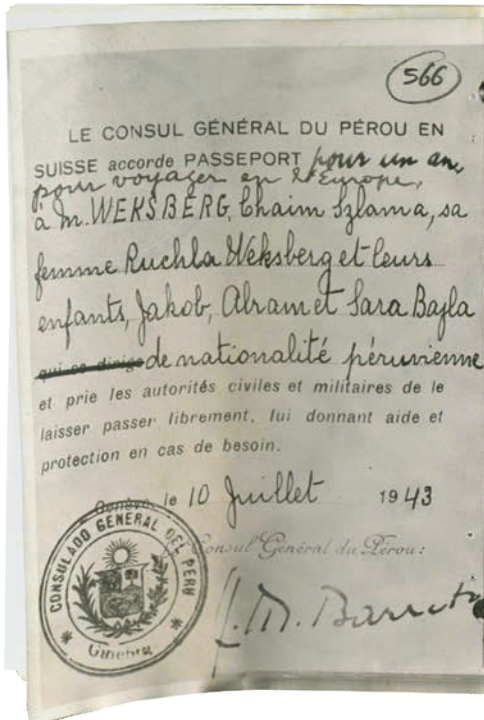 566
LE CONSUL GÉNÉRAL DU PÉROU EN
SUISSE accorde PASSEPORT pour un an,
pour voyager en l'Europe,
à M. WEKSBERG, Chaim Szlama, sa
femme Ruchla Weksberg et leurs
enfants, Jakob, Abram et Sara Bajla
qui se dirige de nationalité péruvienne
et prie les autorités civiles et militaires de le
laisser passer librement, lui donnant aide et
protection en cas de besoin.
Genève, le 10 Juillet 1943
Consul Général du Pérou:
J. M. Barreto
CONSULADO GENERAL DEL PERU
Ginebra